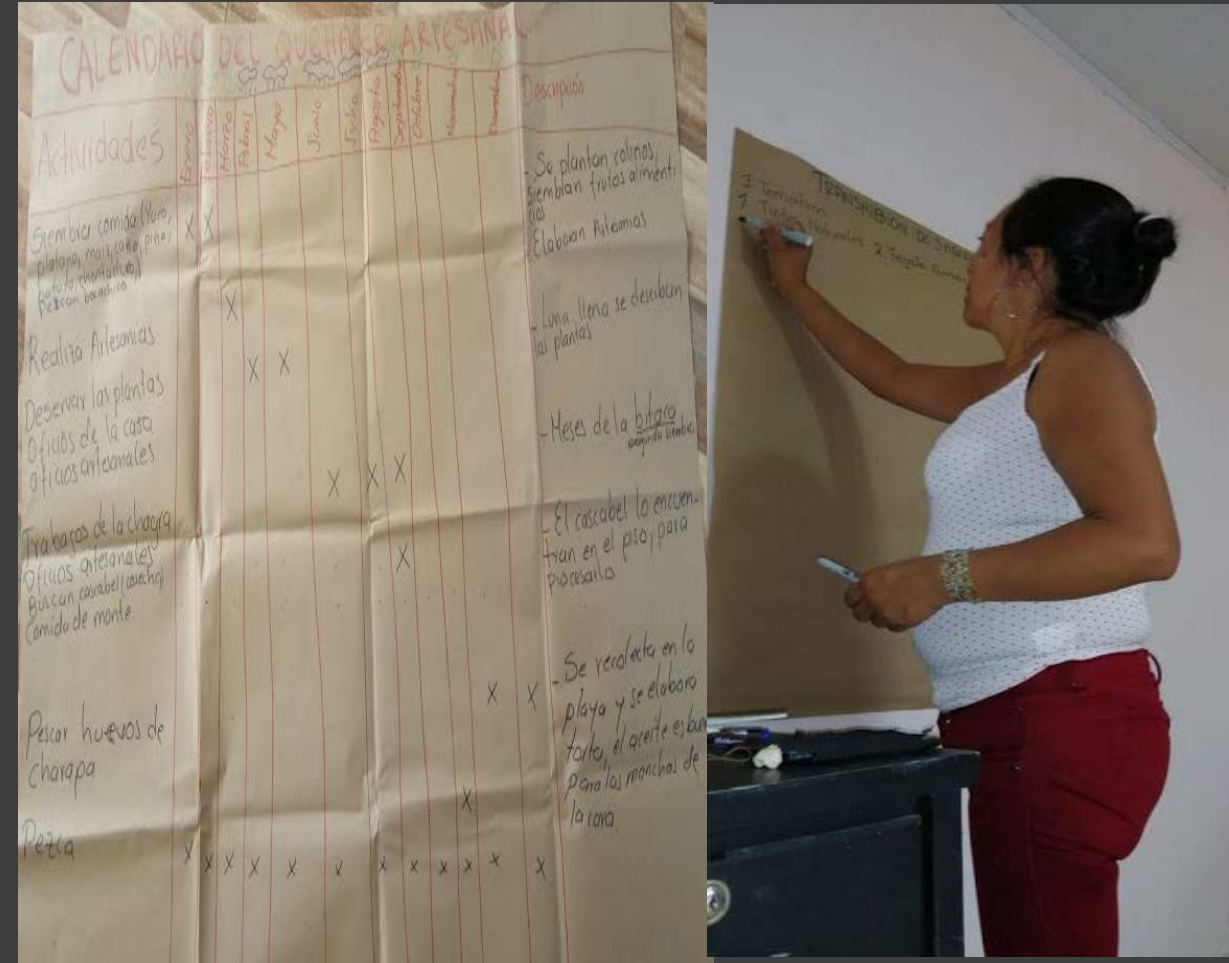 CALENDARIO DEL QUEHACER ARTESANAL
Actividades
Enero
Febrero
Marzo
Abril
Mayo
Junio
Julio
Agosto
Septiembre
Octubre
Noviembre
Descripción
Siembra comida (Yuca,
platano, maiz, caña, piña,
batata, chontaduro)
Pescan bocachico
X X
- Se plantan colinos,
siembran frutos alimenti
cios
Elaboran Artesanias
Realiza Artesanias
X
- Luna llena se deserban
las plantas
Deservar las plantas
Oficios de la casa
Oficios artesanales
X X
- Meses de la bitaca
segunda siembra
Trabajos de la chagra
Oficios artesanales
Buscan cascabel (cosecha)
Comida de monte
X X X
X
- El cascabel lo encuen-
tran en el piso, para
procesarlo
Pescar huevos de
charapa
X X
X
- Se recolecta en la
playa y se elabora
torta, el aceite es
para las manchas de
la cara
Pezca
X X X X X X X X X X X X
TRANSMISION DE
Naturales. 2.